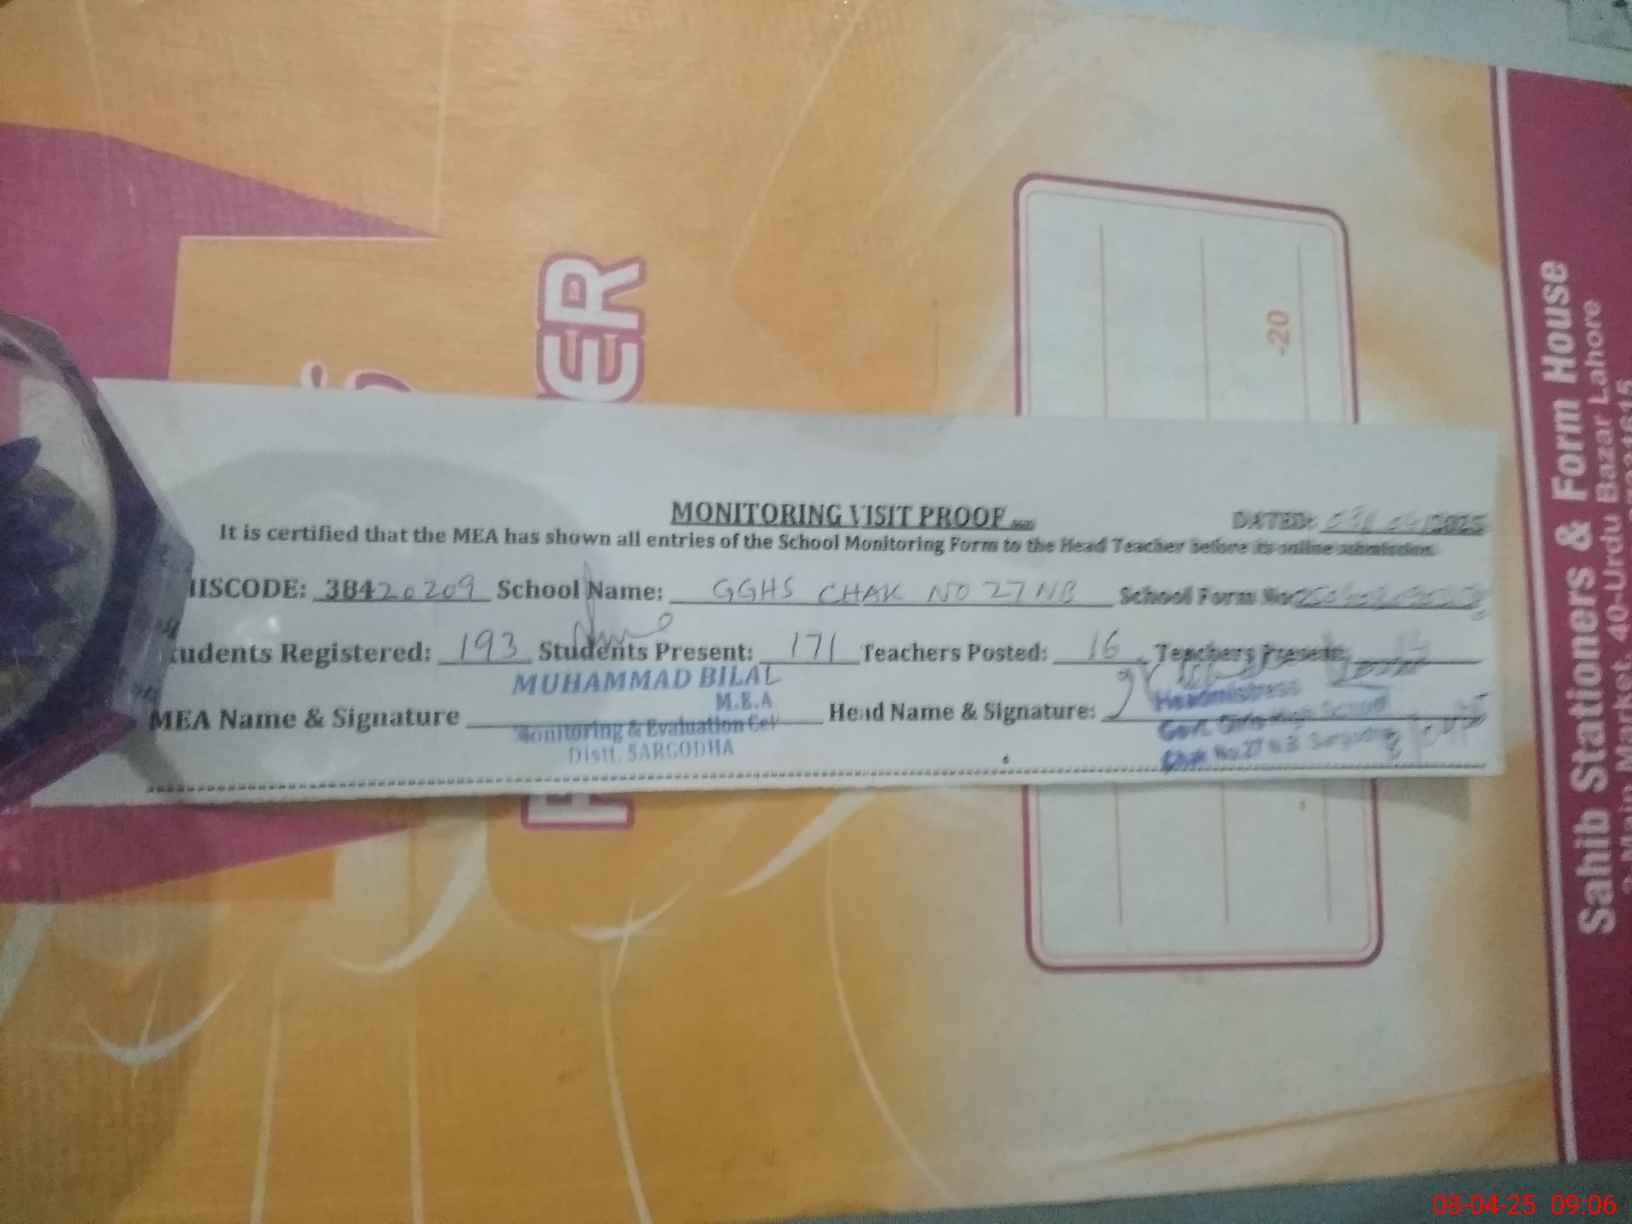 MONITORING VISIT PROOF
DATED: 08/04/2025
It is certified that the MEA has shown all entries of the School Monitoring Form to the Head Teacher before its online submission.
IISCODE: 38420209 School Name: GGHS CHAK NO 27 NB School Form No:
tudents Registered: 193 Students Present: 171 Teachers Posted: 16 Teachers Present:
MEA Name & Signature
MUHAMMAD BILAL
M.E.A
Monitoring & Evaluation Cel
Distt. SARGODHA
Head Name & Signature:
Headmistress
Govt. Girls High School
Chak No.27 N.B Sargodha
ER
-20
Sahib Stationers & Form House
Main Market, 40-Urdu Bazar Lahore
08-04-25 09:06